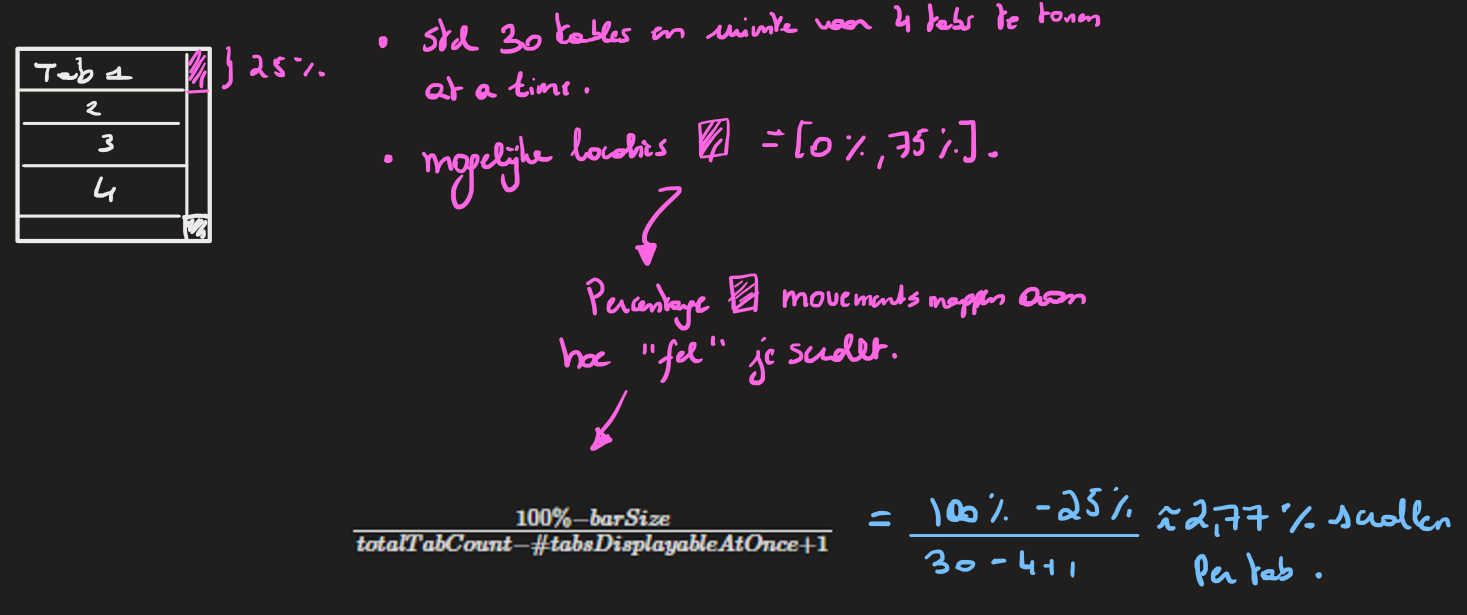 Tab 1
2
3
4
25%
• Std 30 tables en ruimte voor 4 tabs te tonen
at a time.
• mogelijke locaties = [0%, 75%].
Percentage movements mappen aan
hoe "fel" je scrollt.
100%−barSize
totalTabCount−#tabsDisplayableAtOnce+1
= 100% - 25% ≈ 2,77% scrollen
30 - 4 + 1 Per tab.